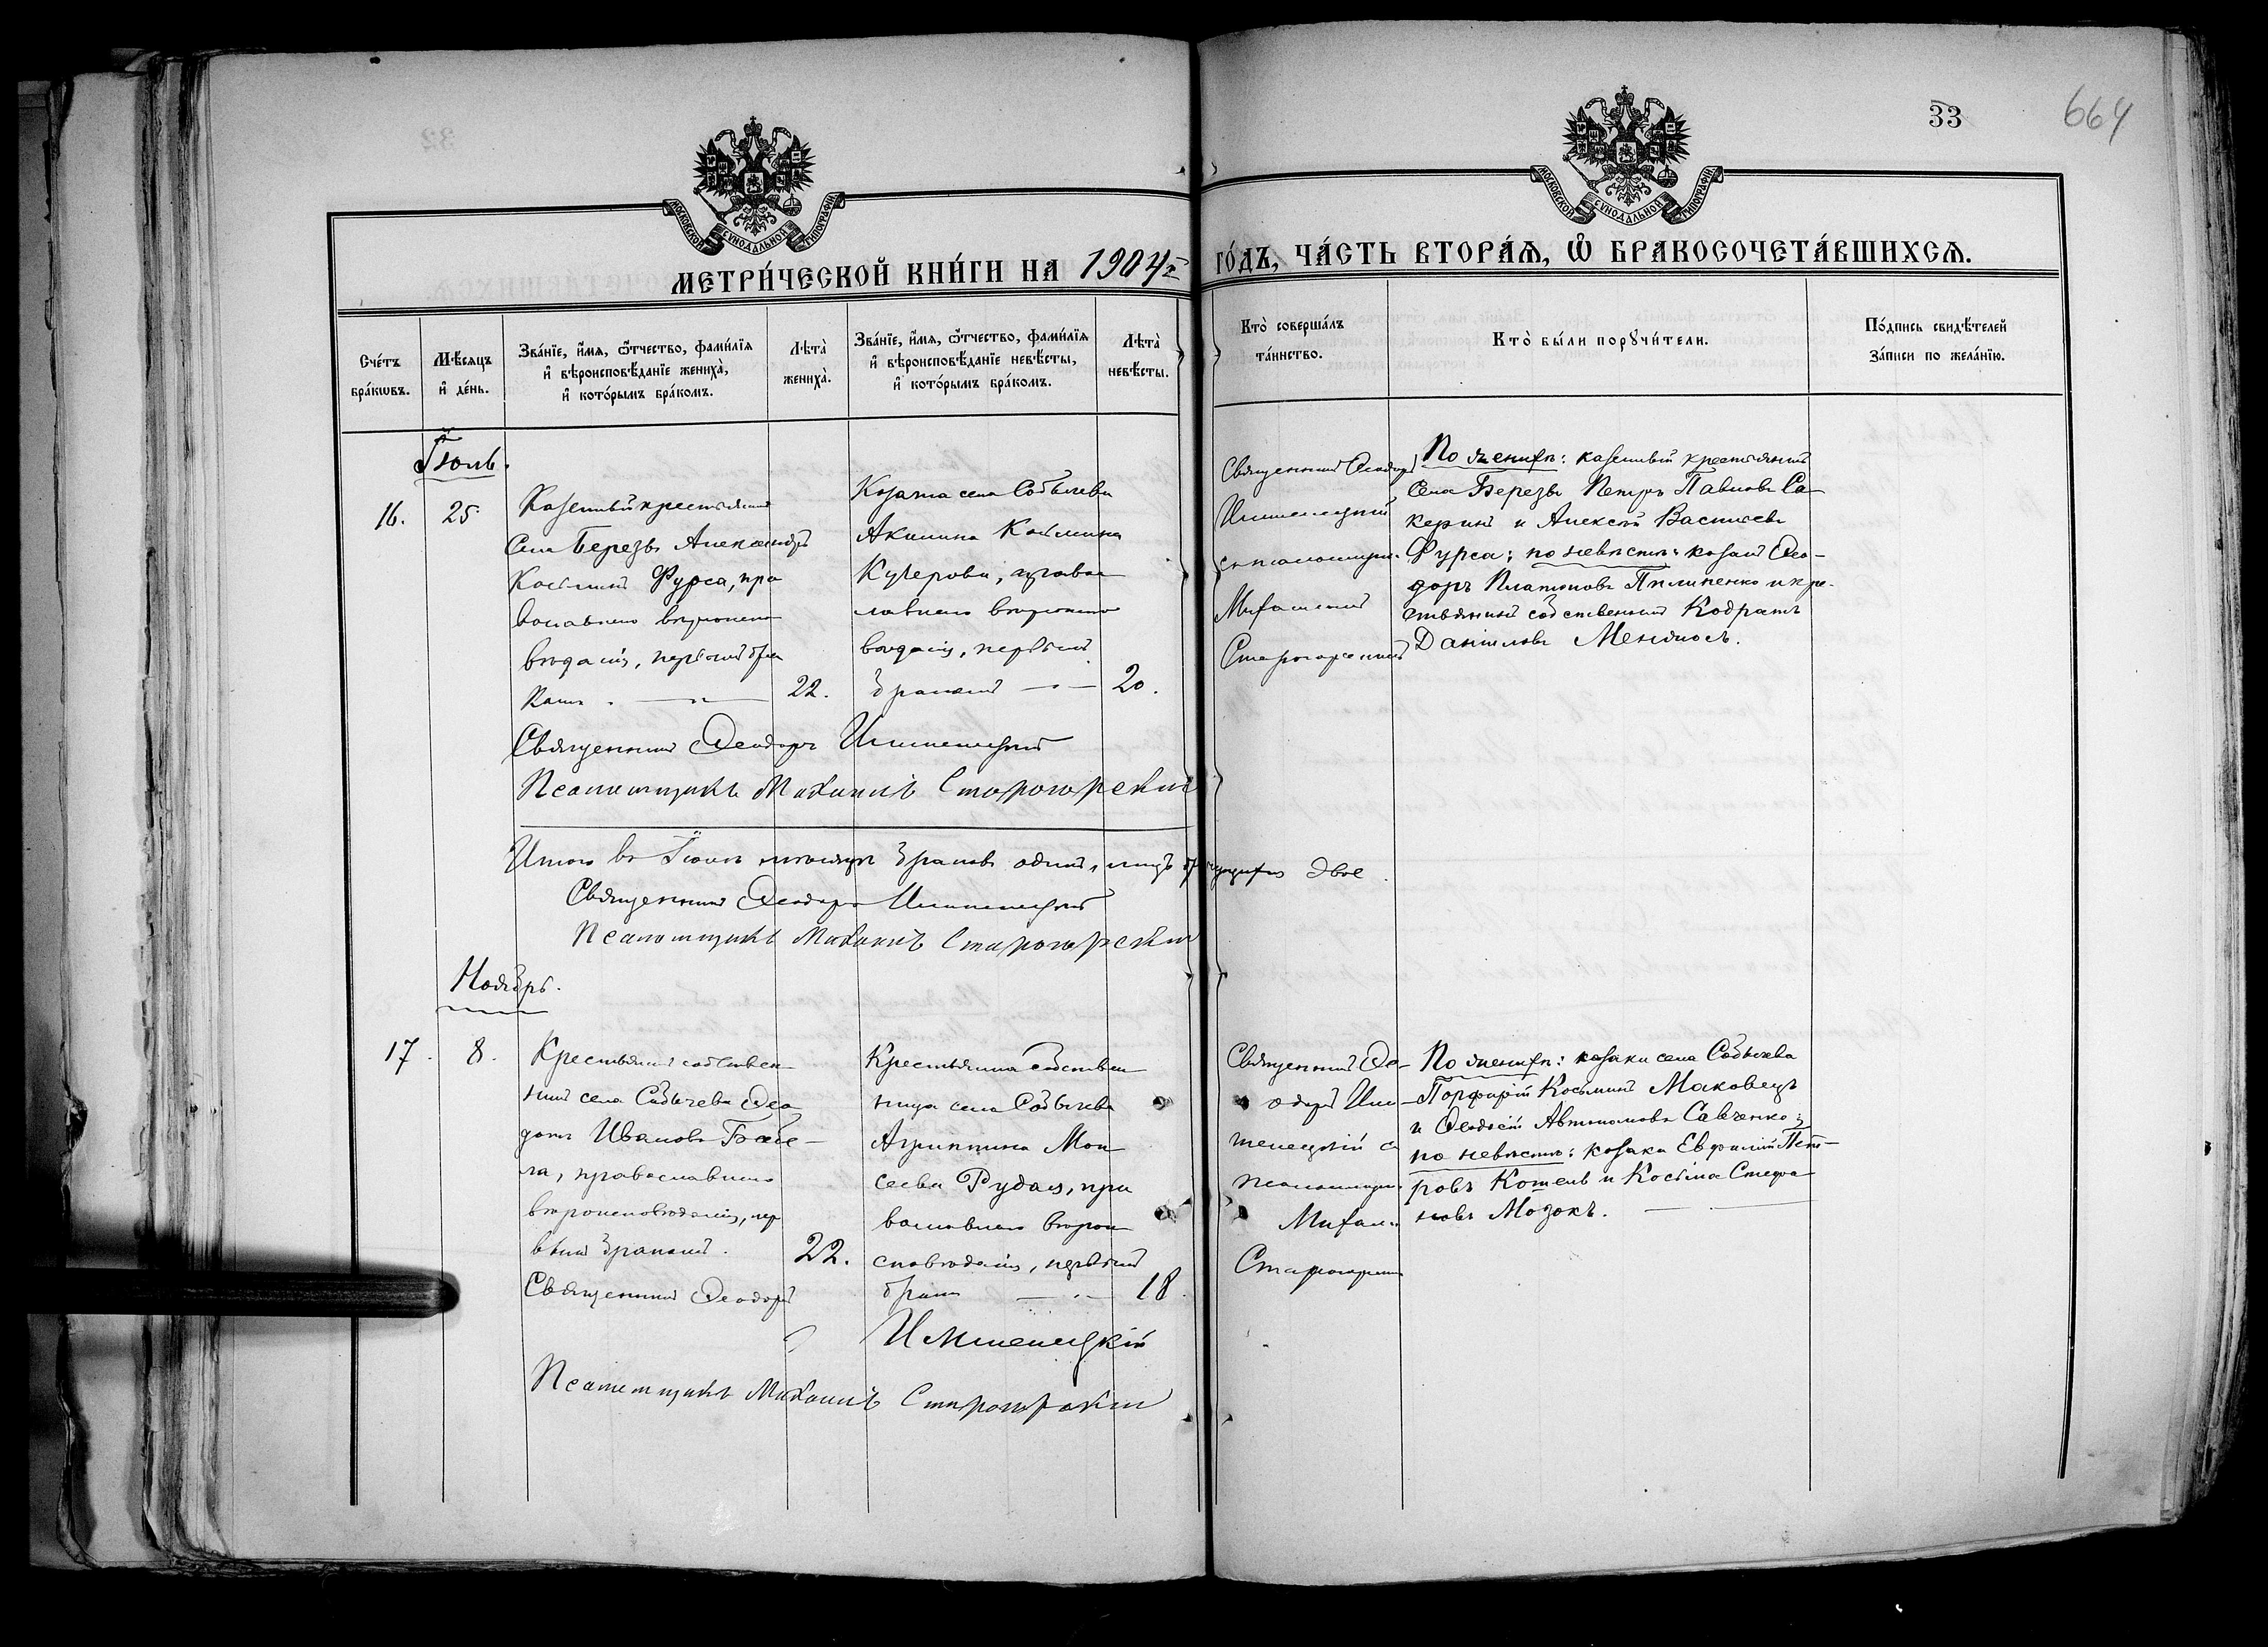 33
664
МОСКОВСКОЙ СѴНОДАЛЬНОЙ ТИПОГРАФІИ
МОСКОВСКОЙ СѴНОДАЛЬНОЙ ТИПОГРАФІИ
МЕТРИ́ЧЕСКОЙ КНИ́ГИ НА 1904й ГО́ДЪ, ЧА́СТЬ ВТОРА́Я, Ѡ҆ БРАКОСОЧЕТА́ВШИХСЯ.
Сче́тъ бра́кѡвъ.
Мѣ́сяцъ и҆ де́нь.
Зва́нїе, и҆́мя, ѻ҆́тчество, фами́лїя и҆ вѣроисповѣ́данїе жениха̀, и҆ кото́рымъ бра́комъ.
Лѣта̀ жениха̀.
Зва́нїе, и҆́мя, ѻ҆́тчество, фами́лїя и҆ вѣроисповѣ́данїе невѣ́сты, и҆ кото́рымъ бра́комъ.
Лѣта̀ невѣ́сты.
Кто̀ соверша́лъ та́инство.
Кто̀ бы́ли порꙋчи́тели.
По́дпись свидѣ́телей за́писи по жела́нїю.
Іюль.
16.
25.
Казенный крестьянинъ
села Березы Александръ
Космина Фурса, пра
вославнаго вѣроиспо
вѣданія, первымъ бра
комъ
22.
Козачка села Собычева
Акилина Косьмина
Кучерова, правос
лавнаго вѣроиспо
вѣданія, первымъ
бракомъ
20.
Священникъ Ѳеодоръ
Имшенецкій
съ псаломщик.
Михаиломъ
Старогорскимъ
По женихѣ: казенный крестьянинъ
села Березы Петръ Павловъ Са
керинъ и Алексѣй Васильевъ
Фурса; по невѣстѣ: козакъ Ѳео-
доръ Платоновъ Пилипенко и кре-
стьянинъ собственникъ Кодратъ
Даніиловъ Меняйлъ.
Священникъ Ѳеодоръ Имшенецкій
Псаломщикъ Михаилъ Старогорскій
Итого въ Іюлѣ мѣсяцѣ браковъ одинъ, лицъ бр чущихся двое.
Священникъ Ѳеодоръ Имшенецкій
Псаломщикъ Михаилъ Старогорскій
Ноябрь.
17.
8.
Крестьянинъ собствен
никъ села Собычева Ѳео
дотъ Ивановъ Бабе-
ла, православнаго
вѣроисповѣданія, пер
вымъ бракомъ.
22.
Крестьянка собствен
ница села Собычева
Агриппина Мои
сеева Рудая, пра
вославнаго вѣрои
сповѣданія, первымъ
бракомъ
18.
Священникъ Ѳе-
одоръ Имш-
шенецкій съ
псаломщик.
Михаил.
Старогорским
По женихѣ: козаки села Собычева
Порфирій Косьминъ Маковецъ
и Ѳеодосій Автономовъ Савченко;
по невѣстѣ: козаки Евфимій Пет-
ровъ Кошель и Косьма Стефа
новъ Мозокъ.
Священникъ Ѳеодоръ
Имшенецкій
Псаломщикъ Михаилъ Старогорскій